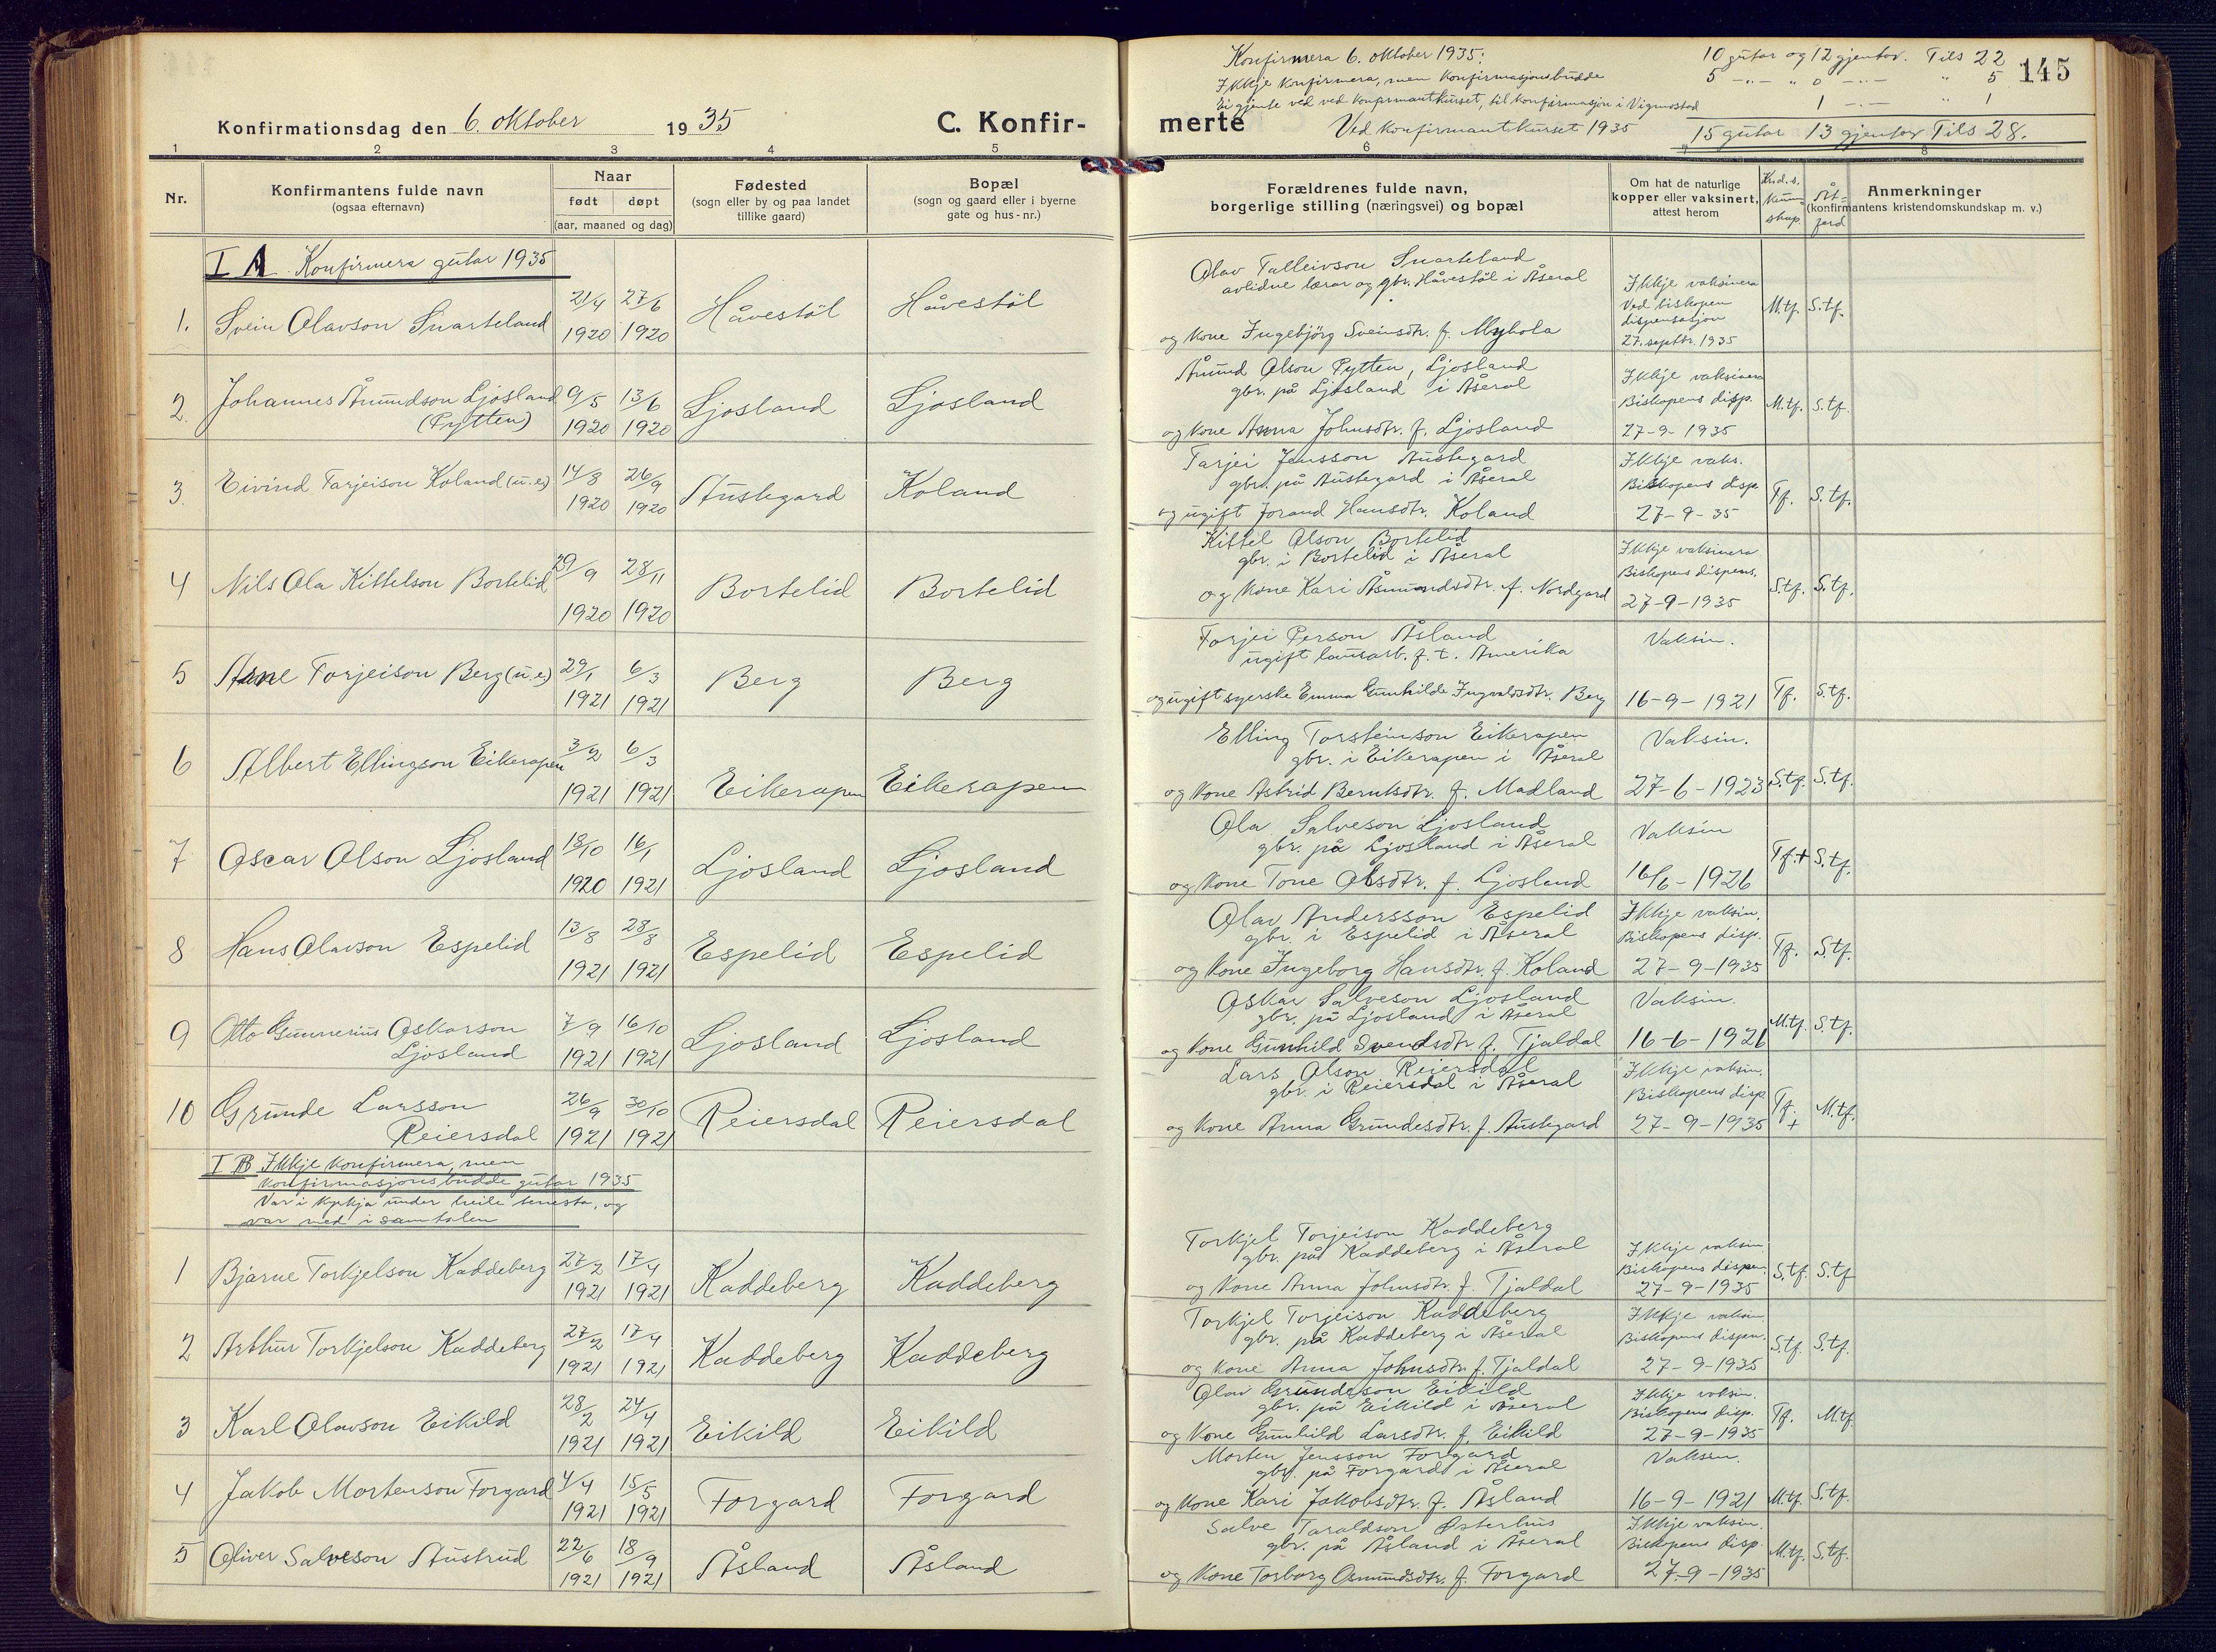 Konfirmationsdag den 6. oktober 1935
C. Konfir-
merte
145
Konfirmera 6. oktober 1935: 10 gutar og 12 gjentor. Tils 22
Ikkje konfirmera, men konfirmasjonsbudde 5 -"- " 0 -"- " 5
Ei gjente ved ved konfirmantkurset, til konfirmasjon i Vigmostad 1 -"- " 1
Ved konfirmantkurset 1935 15 gutar 13 gjentor Tils 28.
1 2 3 4 5 6 8
Nr.
Konfirmantens fulde navn
(ogsaa efternavn)
Naar
født døpt
(aar, maaned og dag)
Fødested
(sogn eller by og paa landet
tillike gaard)
Bopæl
(sogn og gaard eller i byerne
gate og hus-nr.)
Forældrenes fulde navn,
borgerlige stilling (næringsvei) og bopæl
Om hat de naturlige
kopper eller vaksinert,
attest herom
Krd.s.
kunn-
skap
Åt-
ferd
Anmerkninger
(konfirmantens kristendomskundskap m. v.)
I A Konfirmera gutar 1935
1. Svein Olavson Snarteland 21/4 1920 27/6 1920 Håvestöl Håvestöl
OlavТалleivson Snarteland
avlidne lærar og gbr. Håvestöl i Åseral
og kone Ingebjörg Sveinsdtr. f. Myhola
Ikkje vaksinera
Ved biskopen
dispensasjon
27. septbr. 1935
M.tf. S.tf.
2. Johannes Åmundson Ljosland
(Pytten) 9/5 1920 13/6 1920 Ljosland Ljosland
Åmund Olson Pytten, Ljosland
gbr. på Ljosland i Åseral
og kone Anna Johnsdtr. f. Ljosland
Ikkje vaksinera
Biskopens disp.
27-9-1935
M.tf. S.tf.
3. Eivind Tarjeison Koland (u.e.) 14/8 1920 26/9 1920 Austegard Koland
Tarjei Jensson Austegard
gbr. på Austegard i Åseral
og ugift Jorand Hansdtr. Koland
Ikkje vaks.
Biskopens disp
27-9-35
Tf. S.tf.
4 Nils Ola Kittelson Bortelid 29/9 1920 28/11 1920 Bortelid Bortelid
Kittel Olson Bortelid
gbr. i Bortelid i Åseral
og kone Kari Åsmundsdtr. f. Nordgard
Ikkje vaksinera
Biskopens dispens.
27-9-1935
S.tf. S.tf.
5 Arne Torjeison Berg (u.e.) 29/1 1921 6/3 1921 Berg Berg
Torjei Person Åsland
ugift lausarb. f.t. Amerika
og ugift syerske Emma Gunhilde Ingvaldsdtr. Berg
Vaksin.
16-9-1921
Tf. S.tf.
6 Albert Ellingson Eikerapen 3/2 1921 6/3 1921 Eikerapen Eikerapen
Elling Torsteinson Eikerapen
gbr. i Eikerapen i Åseral
og kone Astrid Berntsdtr. f. Madland
Vaksin.
27-6-1923
S.tf. S.tf.
7 Oscar Olson Ljosland 18/10 1920 16/1 1921 Ljosland Ljosland
Ola Salveson Ljosland
gbr. på Ljosland i Åseral
og kone Tone Olsdtr. f. Ljosland
Vaksin
16/6-1926
Tf.+ S.tf.
8 Hans Olavson Espelid 13/8 1921 28/8 1921 Espelid Espelid
Olav Andersson Espelid
gbr. i Espelid i Åseral
og kone Ingeborg Hansdtr. f. Koland
Ikkje vaksin.
Biskopens disp.
27-9-1935
Tf. S.tf.
9 Otto Gunnerius Oskarson
Ljosland 7/9 1921 16/10 1921 Ljosland Ljosland
Oskar Salveson Ljosland
gbr. på Ljosland i Åseral
og kone Gunhild Svendsdtr f. Tjaldal
Vaksin.
16-6-1926
M.tf. S.tf.
10 Grunde Larsson
Reiersdal 26/9 1921 30/10 1921 Reiersdal Reiersdal
Lars Olson Reiersdal
gbr. i Reiersdal i Åseral
og kone Anna Grundesdtr. f. Austegard
Ikkje vaksin.
Biskopens disp
27-9-1935
Tf. + M.tf.
I B Ikkje konfirmera, men
konfirmasjonsbudde gutar 1935
Var i kyrkja under heile tenesta, og
var med i samtalen
1 Bjarne Torkjelson Kaddeberg 27/2 1921 17/4 1921 Kaddeberg Kaddeberg
Torkjel Torjeison Kaddeberg
gbr. på Kaddeberg i Åseral
og kone Anna Johnsdtr. f. Tjaldal
Ikkje vaksin
Biskopens dispen.
27-9-1935
S.tf. S.tf
2 Arthur Torkjelson Kaddeberg 27/2 1921 17/4 1921 Kaddeberg Kaddeberg
Torkjel Torjeison Kaddeberg
gbr. på Kaddeberg i Åseral
og kone Anna Johnsdtr. f. Tjaldal
Ikkje vaksin.
Biskopens dispen.
27-9-1935
S.tf. S.tf.
3 Karl Olavson Eikild 28/2 1921 24/4 1921 Eikild Eikild
Olav Grundeson Eikild
gbr. på Eikild i Åseral
og kone Gunhild Larsdtr. f. Eikild
Ikkje vaksin.
Biskopens disp.
27-9-1935
Tf. M.tf
4 Jakob Mortenson Forgard 4/4 1921 15/5 1921 Forgard Forgard
Morten Jensson Forgard
gbr. på Forgard i Åseral
og kone Kari Jakobsdtr. f. Åsland
Vaksin.
16-9-1921
M.tf. S.tf.
5 Oliver Salveson Austrud 22/6 1921 18/9 1921 Åsland Åsland
Salve Taraldson Østerhus
gbr. på Åsland i Åseral
og kone Torborg Osmundsdtr. f. Forgard
Ikkje vaksin.
Biskopens disp.
27-9-1935
M.tf. S.tf.